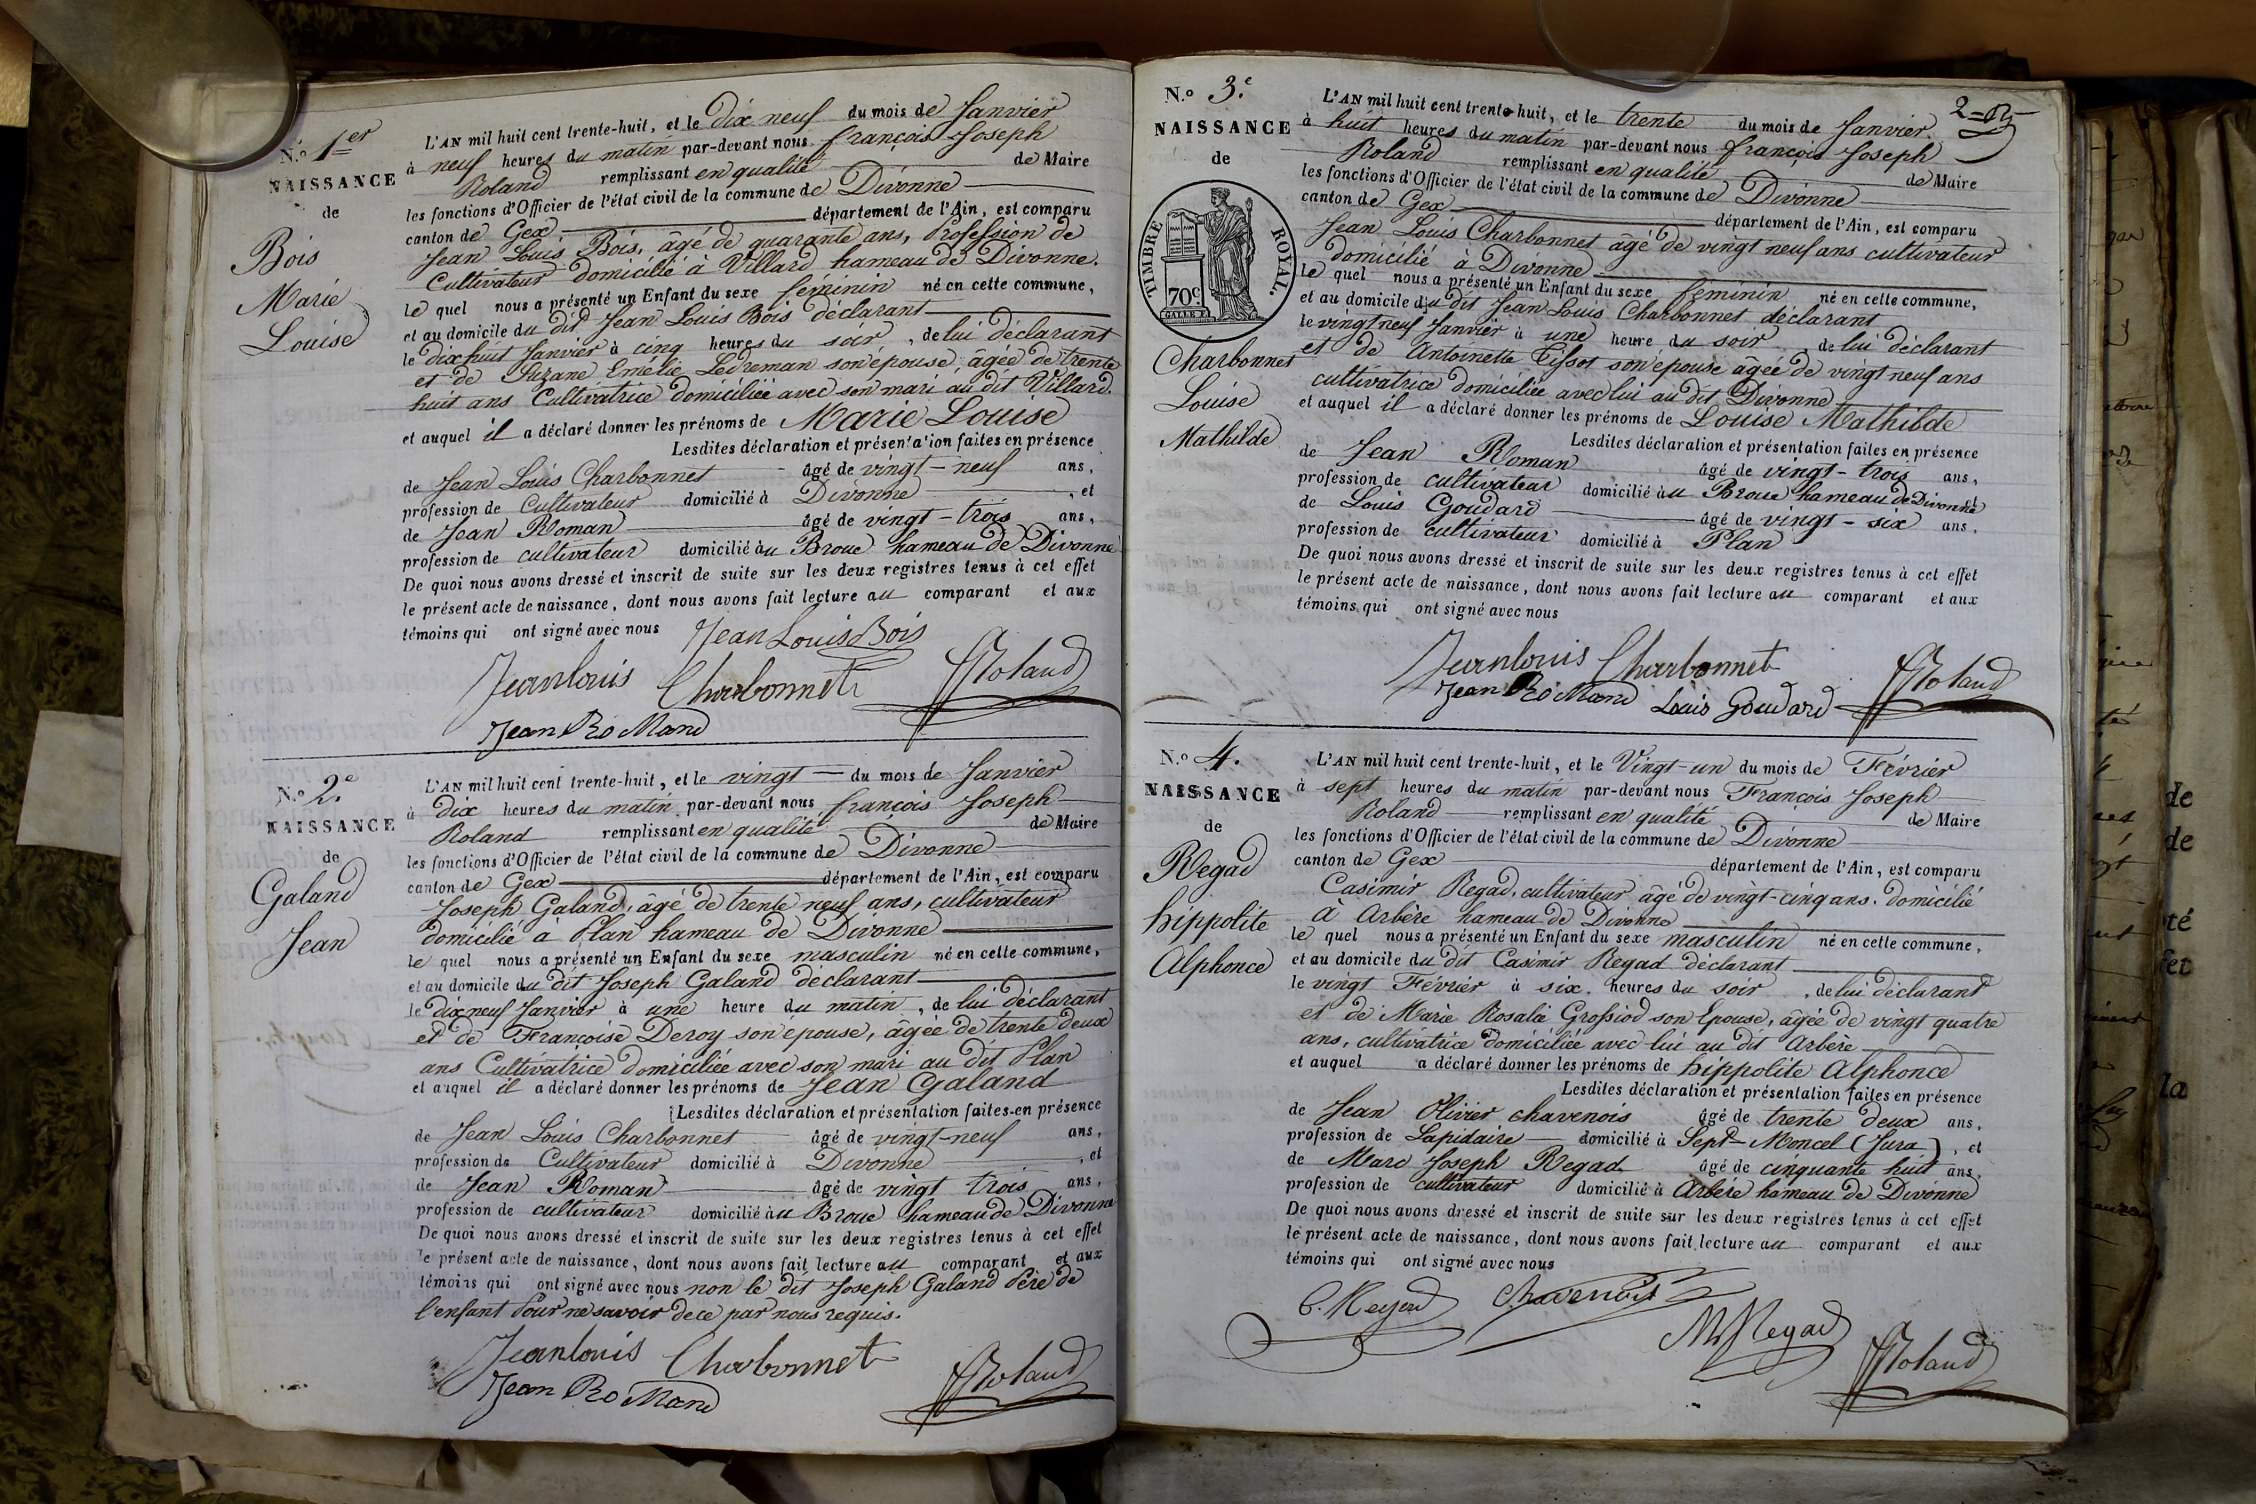 N.o 1er
NAISSANCE
de
Bois
Marie
Louise
L'AN mil huit cent trente-huit, et le dix neuf du mois de Janvier
à neuf heures du matin par-devant nous françois Joseph
Roland remplissant en qualité de Maire
les fonctions d'Officier de l'état civil de la commune de Divonne
canton de Gex département de l'Ain, est comparu
Jean Louis Bois, âgé de quarante ans, Profession de
Cultivateur domicilié à Villard hameau de Divonne.
le quel nous a présenté un Enfant du sexe feminin né en cette commune,
et au domicile du dit Jean Louis Bois déclarant
le dixhuit Janvier à cinq heures du soir, de lui déclarant
et de Suzane Emélie Ledreman son épouse, âgée de trente
huit ans Cultivatrice domiciliée avec son mari au dit Villard.
et auquel il a déclaré donner les prénoms de Marie Louise
Lesdites déclaration et présentation faites en présence
de Jean Louis Charbonnet âgé de vingt-neuf ans,
profession de Cultivateur domicilié à Divonne, et
de Jean Roman âgé de vingt-trois ans,
profession de cultivateur domicilié au Broue hameau de Divonne
De quoi nous avons dressé et inscrit de suite sur les deux registres tenus à cet effet
le présent acte de naissance, dont nous avons fait lecture au comparant et aux
témoins qui ont signé avec nous Jean Louis Bois
Jeanlouis Charbonnet FRoland
Jean Ro Mand
N.o 2e
NAISSANCE
de
Galand
Jean
L'AN mil huit cent trente-huit, et le vingt du mois de Janvier
à dix heures du matin par-devant nous françois Joseph
Roland remplissant en qualité de Maire
les fonctions d'Officier de l'état civil de la commune de Divonne
canton de Gex département de l'Ain, est comparu
Joseph Galand, âgé de trente neuf ans, cultivateur
domicilié a Plan hameau de Divonne
le quel nous a présenté un Enfant du sexe masculin né en cette commune,
et au domicile du dit Joseph Galand déclarant
le dixneuf Janvier à une heure du matin, de lui déclarant
et de Françoise Deroy son épouse, âgée de trente deux
ans Cultivatrice domiciliée avec son mari au dit Plan
et auquel il a déclaré donner les prénoms de Jean Galand
Lesdites déclaration et présentation faites en présence
de Jean Louis Charbonnet âgé de vingt-neuf ans,
profession de Cultivateur domicilié à Divonne, et
de Jean Roman âgé de vingt trois ans,
profession de cultivateur domicilié au Broue hameau de Divonne
De quoi nous avons dressé et inscrit de suite sur les deux registres tenus à cet effet
le présent acte de naissance, dont nous avons fait lecture au comparant et aux
témoins qui ont signé avec nous non le dit Joseph Galand Père de
l'enfant Pour ne savoir de ce par nous requis.
Jeanlouis Charbonnet FRoland
Jean Ro Mand
N.o 3.e
NAISSANCE
de
TIMBRE ROYAL.
70c
Charbonnet
Louise
Mathilde
L'AN mil huit cent trente huit, et le trente du mois de Janvier
à huit heures du matin par-devant nous françois Joseph
Roland remplissant en qualité de Maire
les fonctions d'Officier de l'état civil de la commune de Divonne
canton de Gex département de l'Ain, est comparu
Jean Louis Charbonnet âgé de vingt neuf ans cultivateur
domicilié à Divonne
le quel nous a présenté un Enfant du sexe féminin né en cette commune,
et au domicile du dit Jean Louis Charbonnet déclarant
le vingtneuf Janvier à une heure du soir, de lui déclarant
et de Antoinette Tissot son épouse âgée de vingt neuf ans
cultivatrice domiciliée avec lui au dit Divonne
et auquel il a déclaré donner les prénoms de Louise Mathilde
Lesdites déclaration et présentation faites en présence
de Jean Roman âgé de vingt-trois ans,
profession de cultivateur domicilié au Broue hameau de Divonne et
de Louis Goudard âgé de vingt-six ans,
profession de cultivateur domicilié à Plan
De quoi nous avons dressé et inscrit de suite sur les deux registres tenus à cet effet
le présent acte de naissance, dont nous avons fait lecture au comparant et aux
témoins qui ont signé avec nous
Jeanlouis Charbonnet
Jean Ro Mand Louis Goudard FRoland
N.o 4.
NAISSANCE
de
Regad
hippolite
Alphonce
L'AN mil huit cent trente-huit, et le Vingt-un du mois de Février
à sept heures du matin par-devant nous François Joseph
Roland remplissant en qualité de Maire
les fonctions d'Officier de l'état civil de la commune de Divonne
canton de Gex département de l'Ain, est comparu
Casimir Regad, cultivateur âgé de vingt-cinq ans. domicilié
à Arbère hameau de Divonne
le quel nous a présenté un Enfant du sexe masculin né en cette commune,
et au domicile du dit Casimir Regad déclarant
le vingt Février à six heures du soir, de lui déclarant
et de Marie Rosalie Grossiod son Epouse, âgée de vingt quatre
ans, cultivatrice domiciliée avec lui au dit Arbère
et auquel a déclaré donner les prénoms de hippolite Alphonce
Lesdites déclaration et présentation faites en présence
de Jean Olivier chavenois âgé de trente deux ans,
profession de Lapidaire domicilié à Sept-Moncel (Jura), et
de Marc Joseph Regad âgé de cinquante huit ans,
profession de cultivateur domicilié à Arbère hameau de Divonne
De quoi nous avons dressé et inscrit de suite sur les deux registres tenus à cet effet
le présent acte de naissance, dont nous avons fait lecture au comparant et aux
témoins qui ont signé avec nous
C. Regad Chavenois
MJ Regad
FRoland